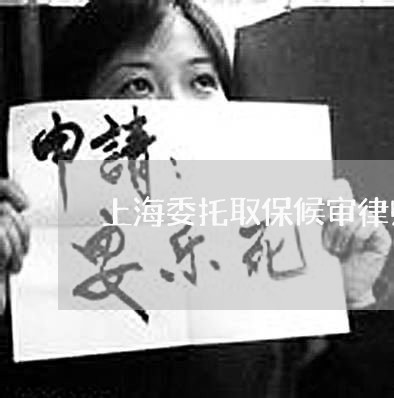 申請：
上海委托取保候审律
乐死